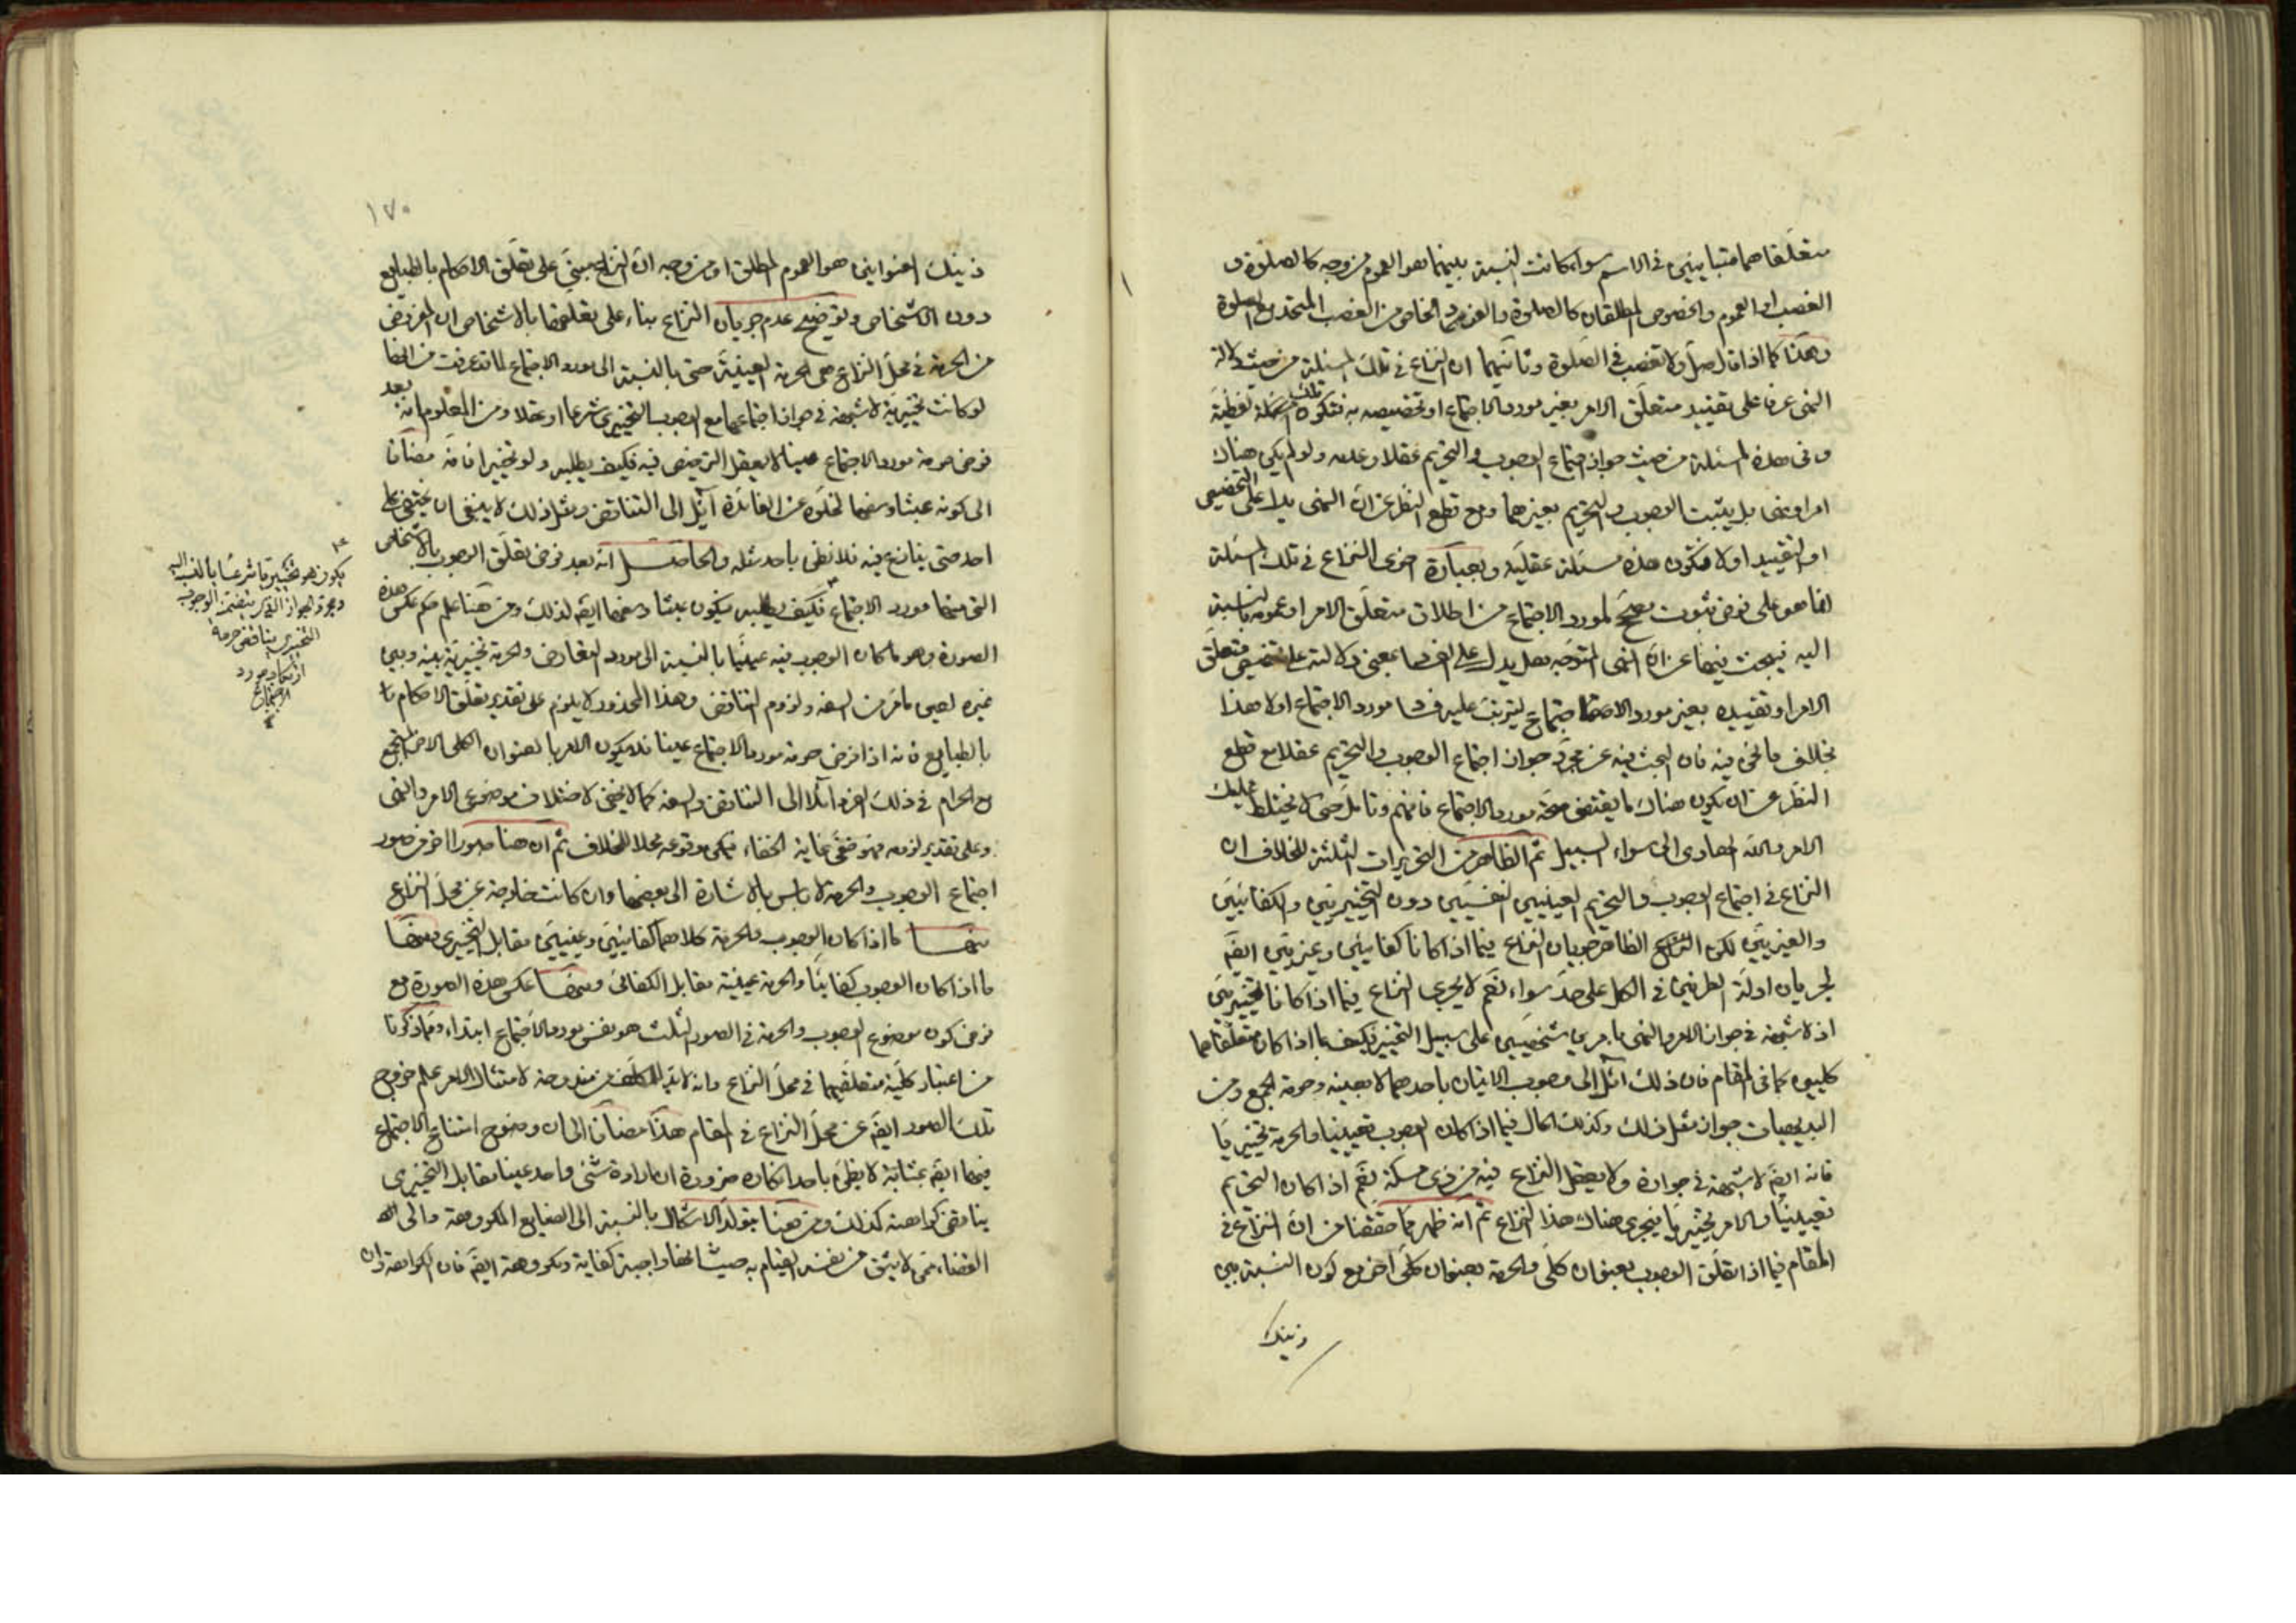 متعلقاهما متباينين في الاسم سواء كانت النسبة بينهما هو العموم من وجه كالصلوة و
الغصب او العموم والخصوص المطلقان كالصلوة والفرد الخاص من الغصب المتحد مع الصلوة
وهكذا كما اذا قال صل ولا تغصب في الصلوة وثانيهما ان النزاع في تلك المسئلة من حيث دلالة
النهى عرفا على تقييد متعلق الامر بغير مورد الاجتماع او تخصيصه به فتكون تلك المسئلة لفظية
وفى هذه المسئلة من حيث جواز اجتماع الوجوب والتحريم عقلا وعدمه ولو لم يكن هناك
امر او نهى بل يثبت الوجوب والتحريم بغيرهما ومع قطع النظر عن ان النهى يدل على التخصيص
او التقييد او لا فتكون هذه مسئلة عقلية وبعبارة اخرى النزاع في تلك المسئلة
انما هو على فرض ثبوت مصحح لمورد الاجتماع من اطلاق متعلق الامر او عمومه بالنسبة
اليه فيبحث فيها عن ان النهى المتوجه هل يدل على الفساد بمعنى دلالته على تخصيص متعلق
الامر او تقييده بغير مورد الاجتماع ليترتب عليه فساد مورد الاجتماع او لا هذا
بخلاف ما نحن فيه فان البحث فيه عن مجرد جواز اجتماع الوجوب والتحريم عقلا مع قطع
النظر عن ان يكون هناك ما يقتضى صحة مورد الاجتماع فافهم وتامل حتى لا يختلط عليك
الامر والله الهادى الى سواء السبيل ثم الظاهر من التحريرات الثلثة للخلاف ان
النزاع في اجتماع الوجوب والتحريم العينيين النفسيين دون التخييريين والكفائيين
والغيريين لكن الظاهر جريان النزاع فيما اذا كانا كفائيين وغيريين ايضا
لجريان ادلة الطرفين في الكل على حد سواء نعم لا يجرى النزاع فيما اذا كانا تخييريين
اذ لا شبهة في جواز الامر والنهى بامرين شخصيين على سبيل التخيير فكيف بما اذا كان متعلقاهما
كليين كما في المقام فان ذلك آئل الى وجوب الاتيان باحدهما لا بعينه وحرمة الجمع ومن
البديهيات جواز مثل ذلك وكذلك الحال فيما اذا كان الوجوب تعيينيا والحرمة تخييريا
فانه ايضا لا شبهة في جوازه ولا يعقل النزاع فيه من ذى مسكة نعم اذا كان التحريم
تعيينيا والامر تخييريا فيجرى هناك هذا النزاع ثم انه ظهر مما حققنا من ان النزاع في
المقام فيما اذا تعلق الوجوب بعنوان كلى والحرمة بعنوان كلى آخر مع كون النسبة بين
ذينك
١٧٠
ذينك العنوانين هو العموم المطلق او من وجه ان النزاع مبنى على تعلق الاحكام بالطبايع
دون الاشخاص وتوضيح عدم جريان النزاع بناء على تعلقها بالاشخاص ان المفروض
من الحرمة في محل النزاع هى الحرمة العينية حتى بالنسبة الى مورد الاجتماع لما قد عرفت من انها
لو كانت تخييرية لا شبهة في جواز اجتماعها مع الوجوب التخييرى شرعا او عقلا ومن المعلوم انه بعد
فرض حرمة مورد الاجتماع عينا لا يعقل الترخيص فيه فكيف بطلبه ولو تخييرا فانه مضافا
الى كونه عبثا وسفها لخلوه عن الفائدة آئل الى التناقض ومثل ذلك لا ينبغى ان يخفى على
احد حتى ينازع فيه فلا نظن باحد مثله والحاصل انه بعد فرض تعلق الوجوب بالاشخاص
التى منها مورد الاجتماع فكيف بطلبه فيكون عبثا وسفها ايضا لذلك ومن هنا علم حكم عكس هذه
الصورة وهو ما كان الوجوب فيه عينيا بالنسبة الى مورد التعارض والحرمة تخييرية بينه وبين
غيره لعين ما مر من السفه ولزوم التناقض وهذا المحذور لا يلزم على تقدير تعلق الاحكام
بالطبايع فانه اذا فرض حرمة مورد الاجتماع عينا فلا يكون الامر بالعنوان الكلى الآخر المجتمع
مع الحرام في ذلك الفرد آئلا الى التناقض والسفه كما لا يخفى لاختلاف موضوعى الامر والنهى
وعلى تقدير لزومه فهو خفى غاية الخفاء فيمكن وقوعه محلا للخلاف ثم ان هنا صورا اخر من صور
اجتماع الوجوب والحرمة لا باس بالاشارة الى بعضها وان كانت خارجة عن محل النزاع
منها ما اذا كان الوجوب والحرمة كلاهما كفائيين وعينيين مقابل التخييرى ومنها
ما اذا كان الوجوب كفائيا والحرمة عينية مقابل الكفائى ومنها عكس هذه الصورة مع
فرض كون موضوع الوجوب والحرمة في الصور الثلث هو نفس مورد الاجتماع ابتداء ومما ذكرنا
من اعتبار كلية متعلقيهما في محل النزاع وانه لا بد للمكلف من مندوحة لامتثال الامر علم خروج
تلك الصور ايضا عن محل النزاع في المقام هذا مضافا الى ان وضوح امتناع الاجتماع
فيها ايضا بمثابة لا يظن باحد انكاره ضرورة ان ارادة شىء واحد عينا مقابل التخييرى
يناقض كراهته كذلك ومن هنا يتولد الاشكال بالنسبة الى الصنايع المكروهة والى
القضاء ممن لا يثق من نفسه القيام به حيث انها واجبة كفاية ومكروهة ايضا فان الكراهة وان
يكون هو تخييريا شرعيا بالنسبة اليه
ومجرد الجواز الذى يتضمنه الوجوب
التخييرى يناقض حرمة
ارتكاب مورد
الاجتماع